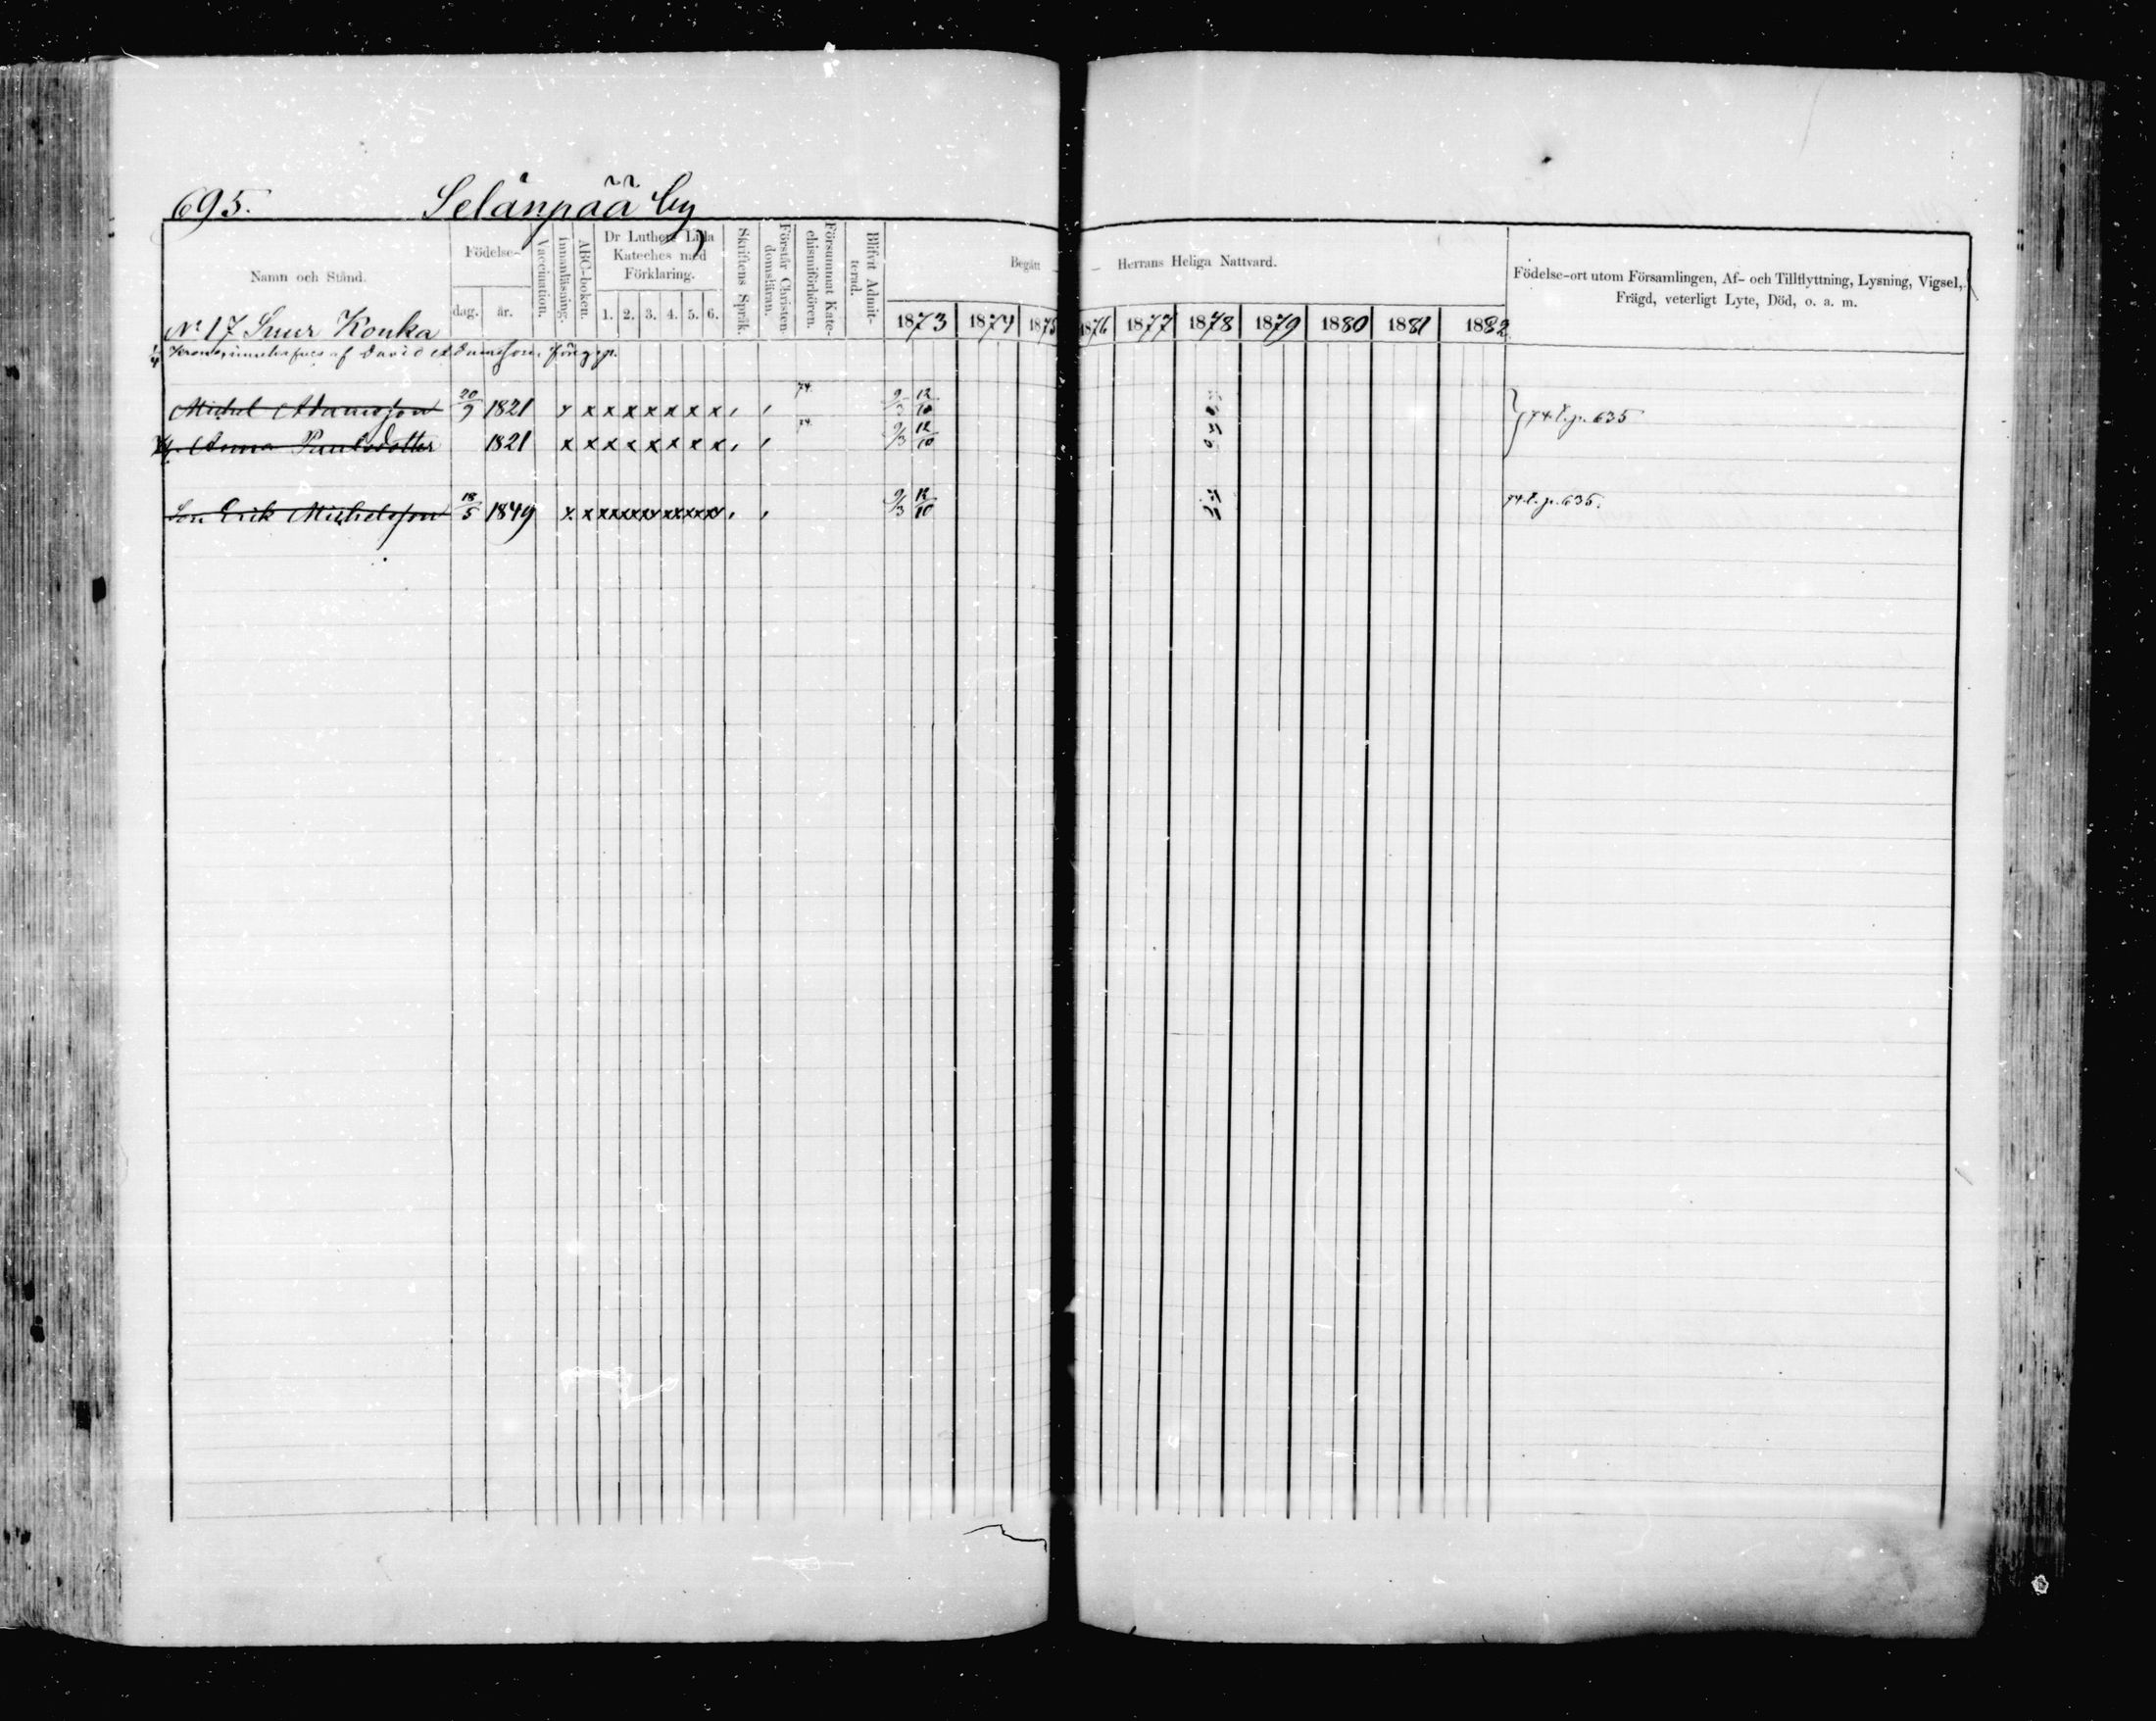 695. Selänpää by
Namn och Stånd.
Födelse-
dag. år.
Vaccination.
Innanläsning.
ABC-boken.
Dr Luthers Lilla
Kateches med
Förklaring.
1. 2. 3. 4. 5. 6.
Skriftens Språk.
Förstår Christen-
domsläran.
Försummat Kate-
chismiförhören.
Blifvit Admit-
terad.
Begått Herrans Heliga Nattvard.
1873 1874 1875 1876 1877 1878 1879 1880 1881 1882
Födelse-ort utom Församlingen, Af- och Tillflyttning, Lysning, Vigsel,
Frägd, veterligt Lyte, Död, o. a. m.
No 17 Suur Konka
af David Adamsson
Michel Adamsson 20/9 1821 x x x x x x x x 74 9/3 12/10 74. l. p. 635
Anna Paulsdotter 1821 x x x x x x x x 74 9/3 12/10
Son Erik Michelsson 18/5 1849 9/3 12/10 74. l. p. 635.